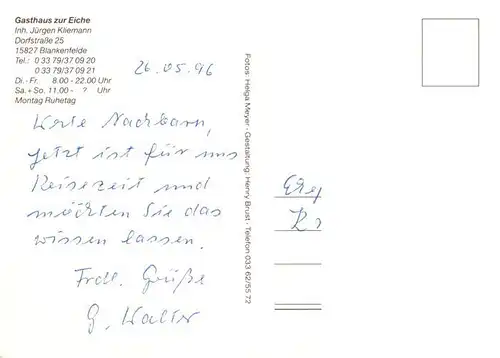 Gasthaus zur Eiche
Inh. Jürgen Kliemann
Dorfstraße 25
15827 Blankenfelde
Tel.: 0 33 79/37 09 20
0 33 79/37 09 21
Di.- Fr. 8.00 - 22.00 Uhr
Sa. + So. 11.00 - ? Uhr
Montag Ruhetag
26.05.96
Werte Nachbarn,
jetzt ist für uns
Reisezeit und
möchten Sie das
wissen lassen.
Frdl. Grüße
G. Walter
Fotos: Helga Meyer - Gestaltung: Henry Brust - Telefon 033 62/55 72